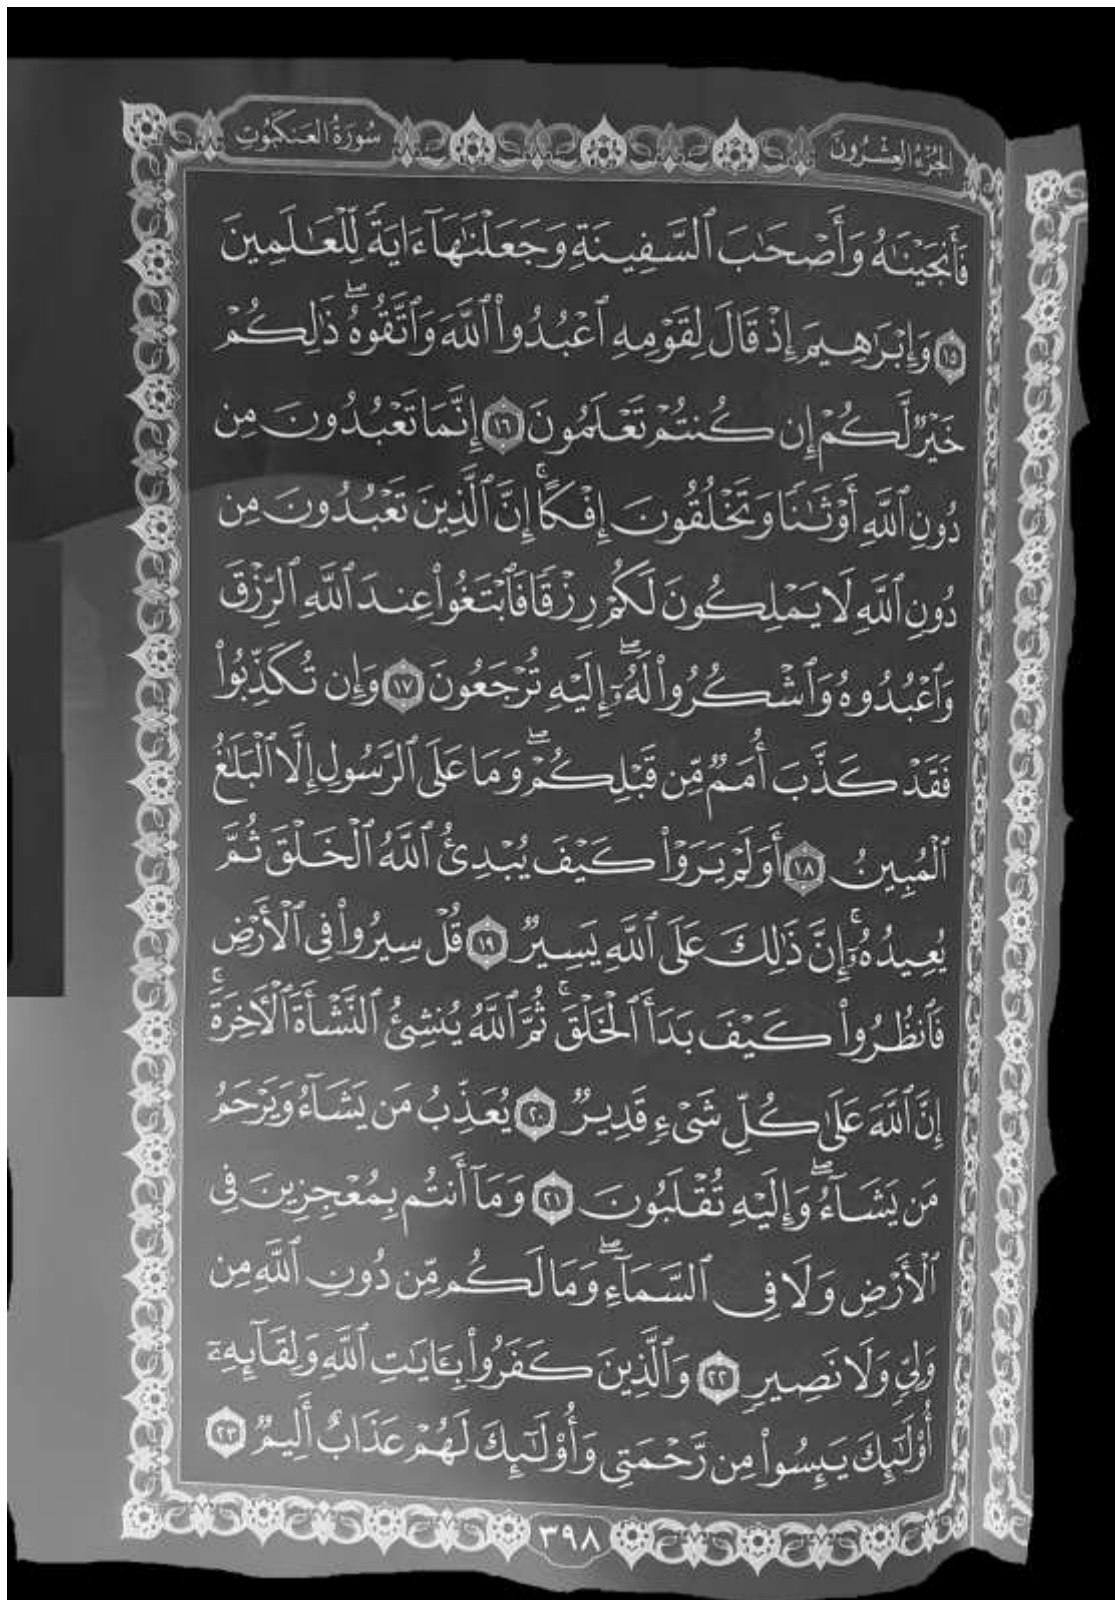 الجزء العشرون
سورة العنكبوت
فَأَنجَيْنَٰهُ وَأَصْحَٰبَ ٱلسَّفِينَةِ وَجَعَلْنَٰهَآ ءَايَةً لِّلْعَٰلَمِينَ
١٥ وَإِبْرَٰهِيمَ إِذْ قَالَ لِقَوْمِهِ ٱعْبُدُوا۟ ٱللَّهَ وَٱتَّقُوهُ ۖ ذَٰلِكُمْ
خَيْرٌ لَّكُمْ إِن كُنتُمْ تَعْلَمُونَ ١٦ إِنَّمَا تَعْبُدُونَ مِن
دُونِ ٱللَّهِ أَوْثَٰنًا وَتَخْلُقُونَ إِفْكًا ۚ إِنَّ ٱلَّذِينَ تَعْبُدُونَ مِن
دُونِ ٱللَّهِ لَا يَمْلِكُونَ لَكُمْ رِزْقًا فَٱبْتَغُوا۟ عِندَ ٱللَّهِ ٱلرِّزْقَ
وَٱعْبُدُوهُ وَٱشْكُرُوا۟ لَهُۥٓ ۖ إِلَيْهِ تُرْجَعُونَ ١٧ وَإِن تُكَذِّبُوا۟
فَقَدْ كَذَّبَ أُمَمٌ مِّن قَبْلِكُمْ ۖ وَمَا عَلَى ٱلرَّسُولِ إِلَّا ٱلْبَلَٰغُ
ٱلْمُبِينُ ١٨ أَوَلَمْ يَرَوْا۟ كَيْفَ يُبْدِئُ ٱللَّهُ ٱلْخَلْقَ ثُمَّ
يُعِيدُهُۥٓ ۚ إِنَّ ذَٰلِكَ عَلَى ٱللَّهِ يَسِيرٌ ١٩ قُلْ سِيرُوا۟ فِى ٱلْأَرْضِ
فَٱنظُرُوا۟ كَيْفَ بَدَأَ ٱلْخَلْقَ ۚ ثُمَّ ٱللَّهُ يُنشِئُ ٱلنَّشْأَةَ ٱلْـَٔاخِرَةَ ۚ
إِنَّ ٱللَّهَ عَلَىٰ كُلِّ شَىْءٍ قَدِيرٌ ٢٠ يُعَذِّبُ مَن يَشَآءُ وَيَرْحَمُ
مَن يَشَآءُ ۖ وَإِلَيْهِ تُقْلَبُونَ ٢١ وَمَآ أَنتُم بِمُعْجِزِينَ فِى
ٱلْأَرْضِ وَلَا فِى ٱلسَّمَآءِ ۖ وَمَا لَكُم مِّن دُونِ ٱللَّهِ مِن
وَلِىٍّ وَلَا نَصِيرٍ ٢٢ وَٱلَّذِينَ كَفَرُوا۟ بِـَٔايَٰتِ ٱللَّهِ وَلِقَآئِهِۦٓ
أُو۟لَٰٓئِكَ يَئِسُوا۟ مِن رَّحْمَتِى وَأُو۟لَٰٓئِكَ لَهُمْ عَذَابٌ أَلِيمٌ ٢٣
٣٩٨